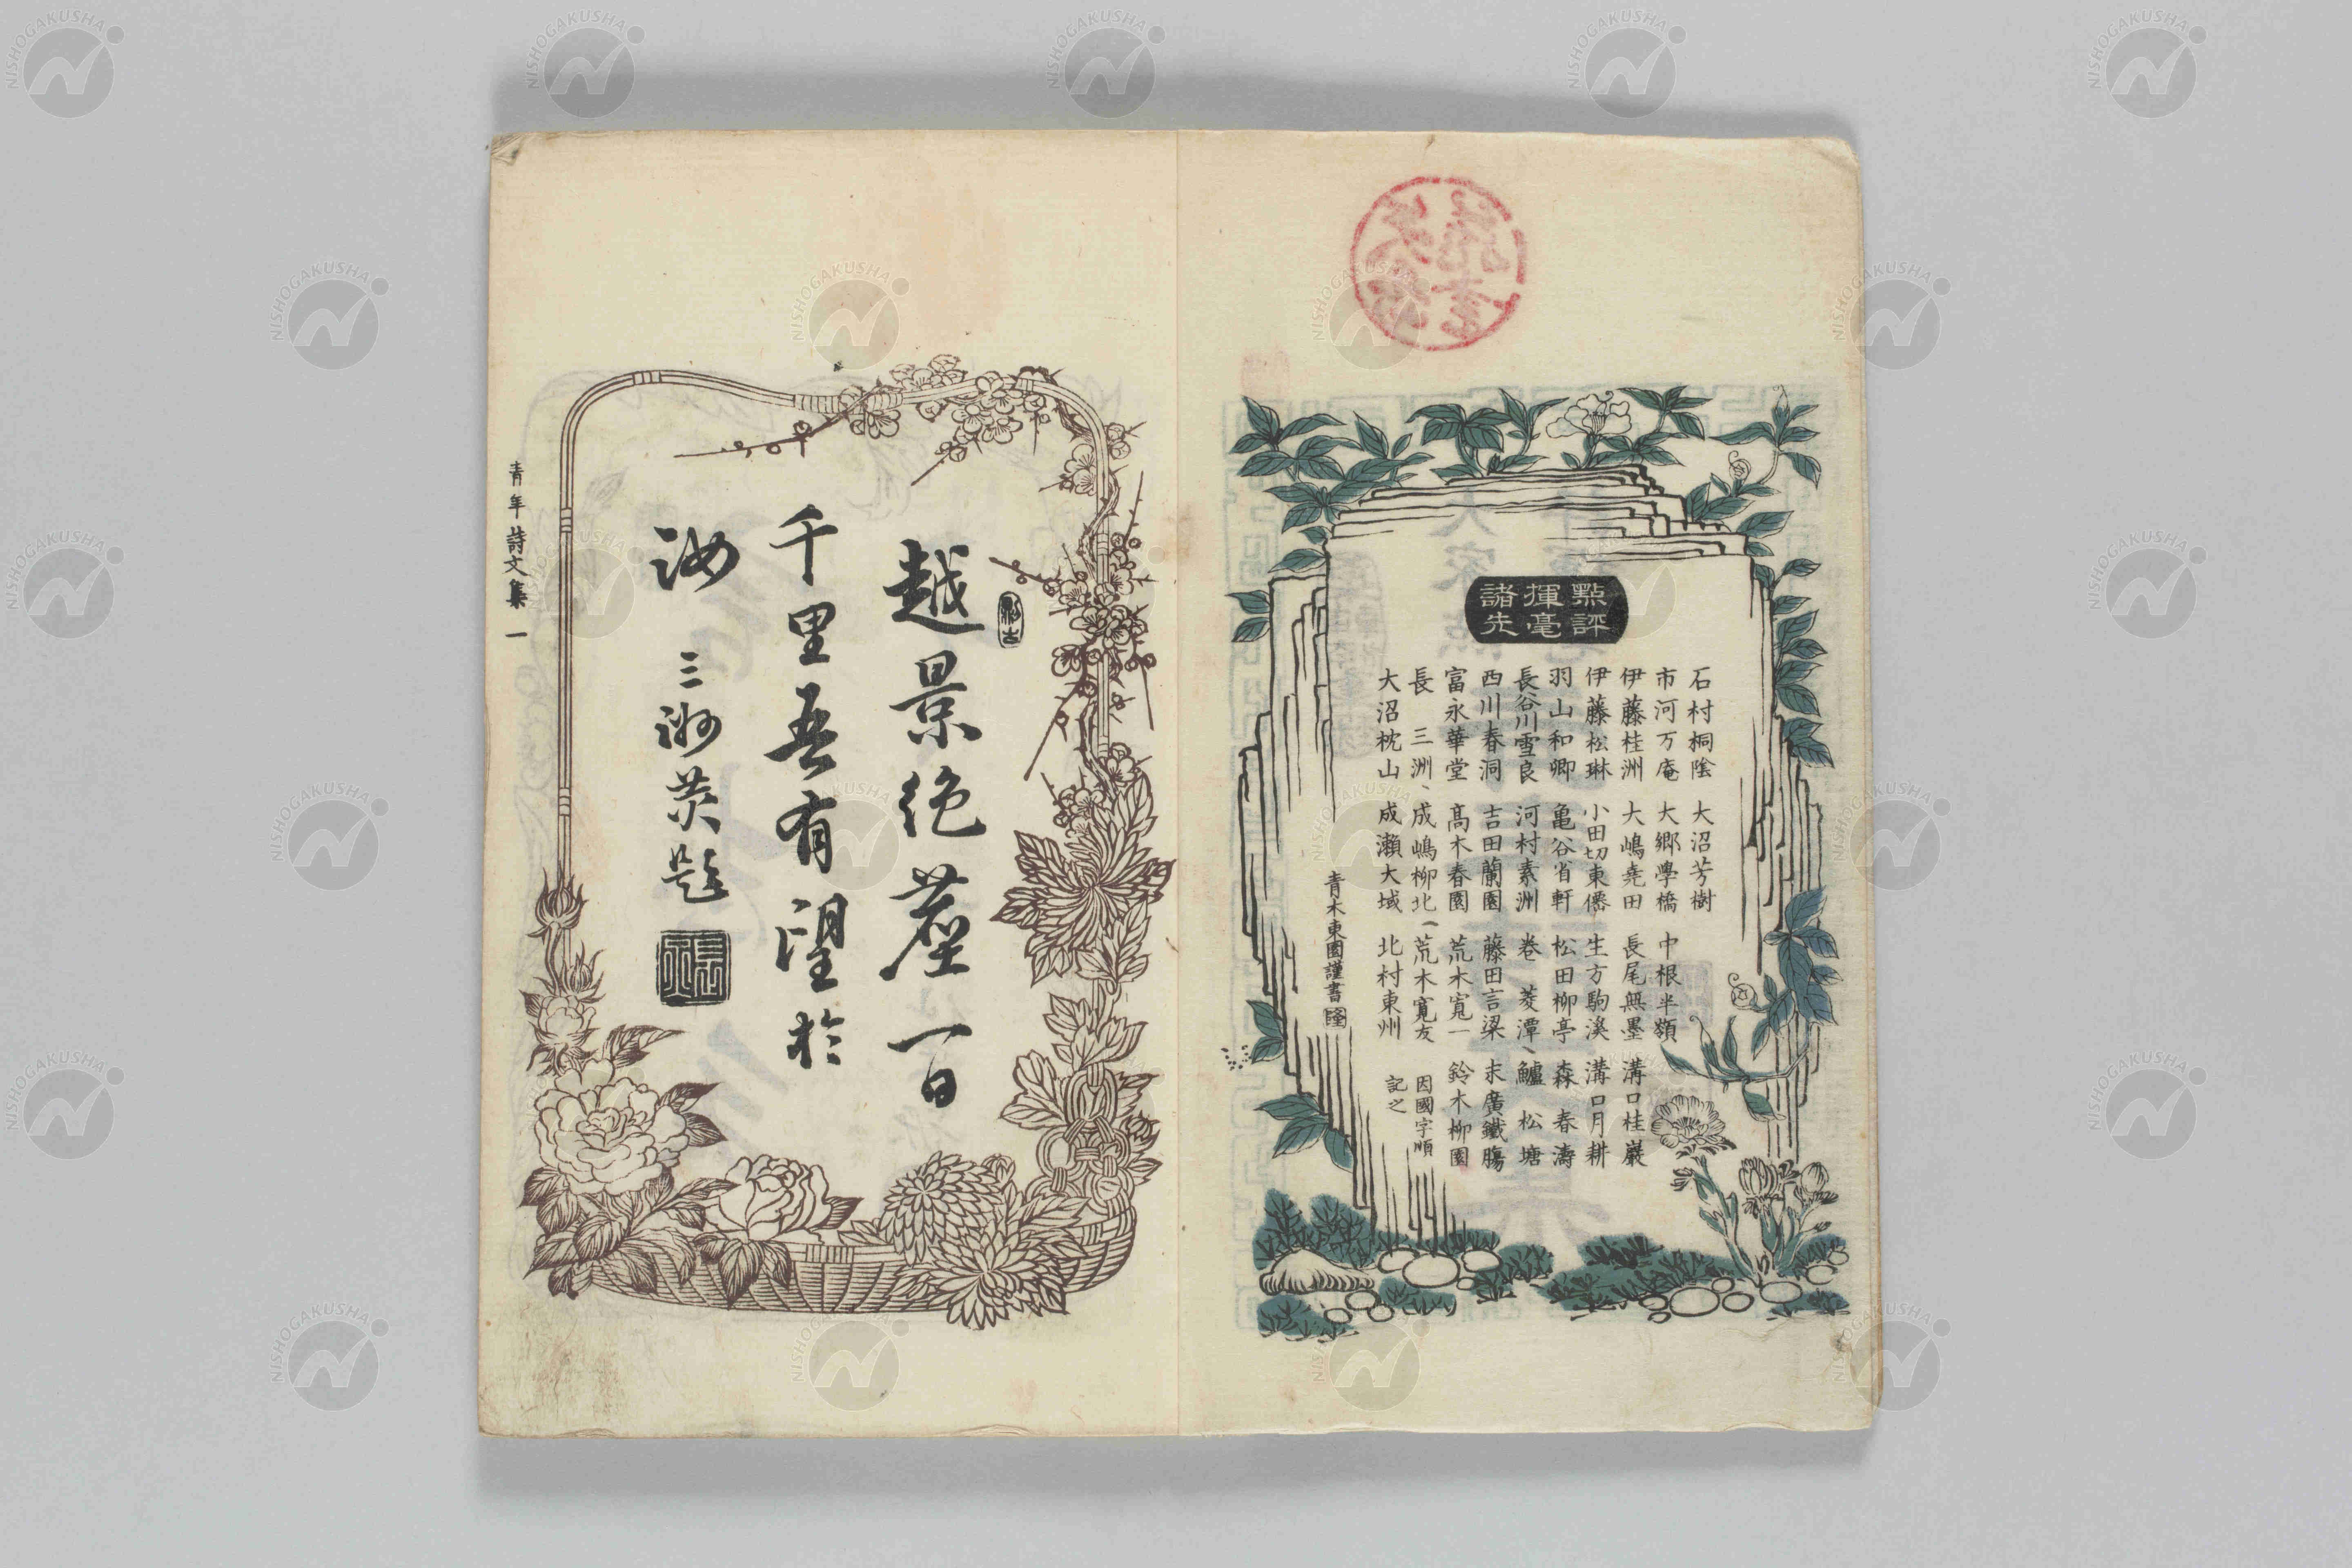 點評
揮毫
諸先
石村桐陰 大沼芳樹 中根半嶺 溝口桂巖
市河万庵 大郷學橋 長尾無墨 溝口月耕
伊藤桂洲 大嶋堯田 生方駒溪 森 春濤
伊藤松琳 小田切東僊 松田柳亭 鱸 松塘
羽山和卿 亀谷省軒 卷 菱潭 末廣鐵膓
長谷川雪良 河村素洲 藤田言梁 鈴木柳園
西川春洞 吉田蘭園 荒木寛一
富永華堂 髙木春園 荒木寛友
長 三洲 成嶋柳北 北村東州
大沼枕山 成瀬大域
因國字順
記之
青木東園謹書
越景絶塵一日
千里吾有望於
汝 三洲炗題
青年詩文集 一
NISHOGAKUSHA